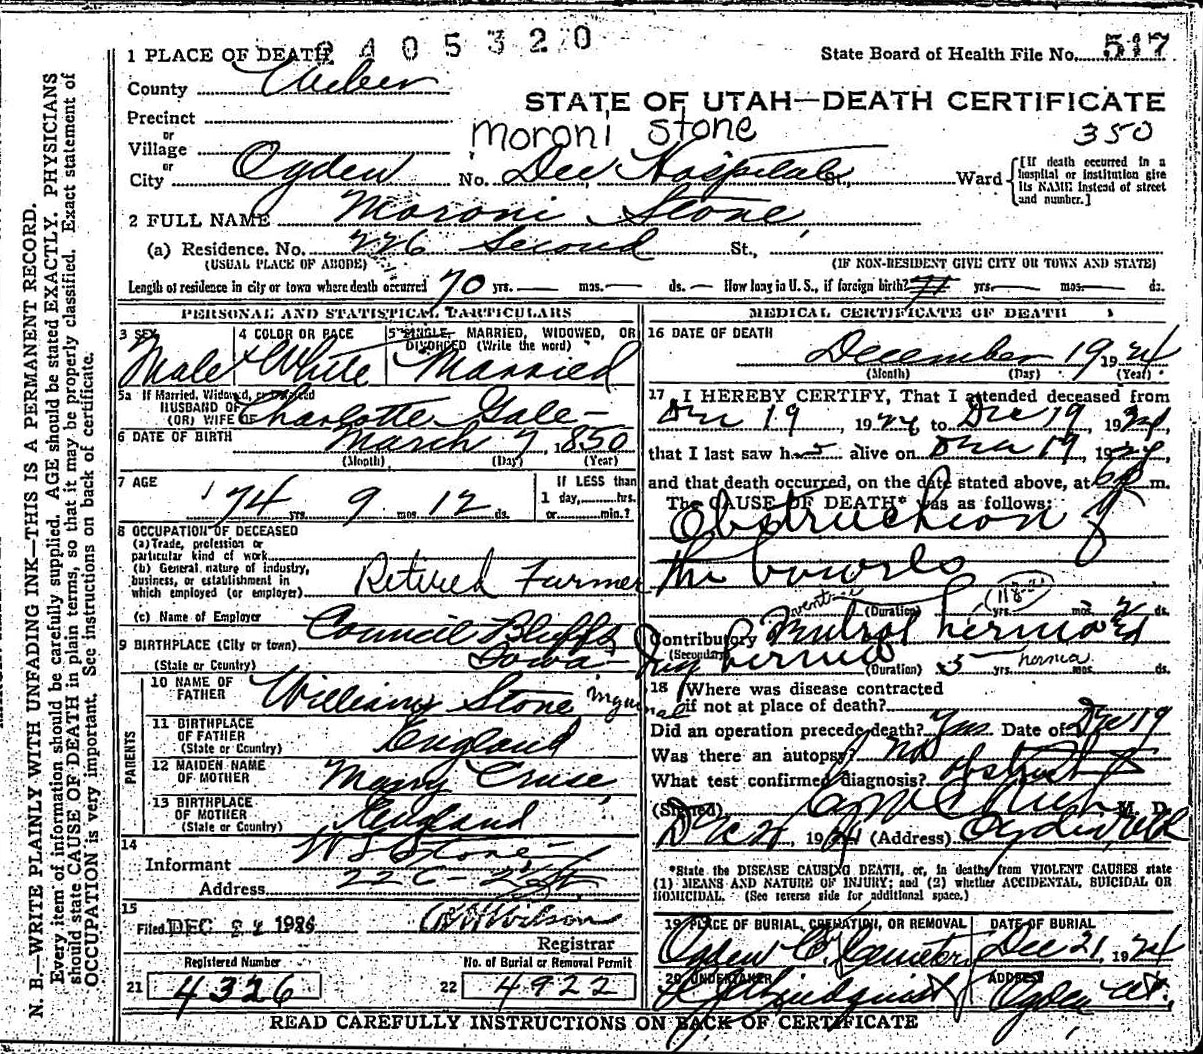 2405320
1 PLACE OF DEATH
State Board of Health File No. 517
County Weber
STATE OF UTAH—DEATH CERTIFICATE
Precinct
or
Village
moroni stone
350
or
City Ogden No. Dee Hospital St., Ward
[If death occurred in a hospital or institution give its NAME instead of street and number.]
2 FULL NAME Moroni Stone
(a) Residence. No. 226 Second St.,
(USUAL PLACE OF ABODE) (IF NON-RESIDENT GIVE CITY OR TOWN AND STATE)
Length of residence in city or town where death occurred 70 yrs. mos. ds. How long in U. S., if foreign birth? 71 yrs. mos. ds.
PERSONAL AND STATISTICAL PARTICULARS
3 SEX
Male
4 COLOR OR RACE
White
5 SINGLE, MARRIED, WIDOWED, OR DIVORCED (Write the word)
Married
5a If Married, Widowed, or Divorced
HUSBAND OF
(OR) WIFE OF Charlotte Gale
6 DATE OF BIRTH March 7, 1850
(Month) (Day) (Year)
7 AGE
74 yrs. 9 mos. 12 ds.
If LESS than
1 day, hrs.
or min.?
8 OCCUPATION OF DECEASED
(a) Trade, profession or
particular kind of work
(b) General nature of industry,
business, or establishment in
which employed (or employer) Retired Farmer
(c) Name of Employer
9 BIRTHPLACE (City or town) Council Bluffs
(State or Country) Iowa
PARENTS
10 NAME OF
FATHER William Stone
11 BIRTHPLACE
OF FATHER
(State or Country) England
12 MAIDEN NAME
OF MOTHER Mary Cruse
13 BIRTHPLACE
OF MOTHER
(State or Country) England
14
Informant W S Stone
Address
15
Filed DEC 22 1924 Wilson
Registrar
Registered Number
21 4326
No. of Burial or Removal Permit
22 4922
MEDICAL CERTIFICATE OF DEATH
16 DATE OF DEATH
December 19 1924
(Month) (Day) (Year)
17 I HEREBY CERTIFY, That I attended deceased from
Dec 19, 1924 to Dec 19, 1924,
that I last saw h alive on Dec 19, 1924,
and that death occurred, on the date stated above, at 6 P m.
The CAUSE OF DEATH* was as follows:
Obstruction of
the bowels
(Duration) yrs. mos. 2 ds.
Contributory ventral hernia
(Secondary) Ing hernia
(Duration) 5 yrs. mos. ds.
inguinal hernia
18 Where was disease contracted
if not at place of death?
Did an operation precede death? Yes Date of Dec 19
Was there an autopsy? No
What test confirmed diagnosis?
(Signed) M. D.
1924 (Address) Ogden, Utah
*State the DISEASE CAUSING DEATH, or, in deaths from VIOLENT CAUSES state
(1) MEANS AND NATURE OF INJURY; and (2) whether ACCIDENTAL, SUICIDAL OR
HOMICIDAL. (See reverse side for additional space.)
19 PLACE OF BURIAL, CREMATION, OR REMOVAL
Ogden C. Cemetery
DATE OF BURIAL
Dec 21, 1924
20 UNDERTAKER
Lindquist
ADDRESS
Ogden Ut.
READ CAREFULLY INSTRUCTIONS ON BACK OF CERTIFICATE
N. B.—WRITE PLAINLY WITH UNFADING INK—THIS IS A PERMANENT RECORD.
Every item of information should be carefully supplied. AGE should be stated EXACTLY. PHYSICIANS
should state CAUSE OF DEATH in plain terms, so that it may be properly classified. Exact statement of
OCCUPATION is very important. See instructions on back of certificate.